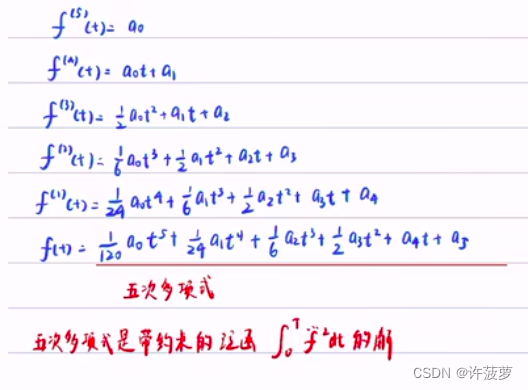 f^{(5)}(t) = a_0
f^{(4)}(t) = a_0t + a_1
f^{(3)}(t) = \frac{1}{2}a_0t^2 + a_1t + a_2
f^{(2)}(t) = \frac{1}{6}a_0t^3 + \frac{1}{2}a_1t^2 + a_2t + a_3
f^{(1)}(t) = \frac{1}{24}a_0t^4 + \frac{1}{6}a_1t^3 + \frac{1}{2}a_2t^2 + a_3t + a_4
f(t) = \frac{1}{120}a_0t^5 + \frac{1}{24}a_1t^4 + \frac{1}{6}a_2t^3 + \frac{1}{2}a_3t^2 + a_4t + a_5
五次多项式
五次多项式是带约束的泛函 \int_0^T \dddot{f}^2 dt 的解
CSDN @许菠萝